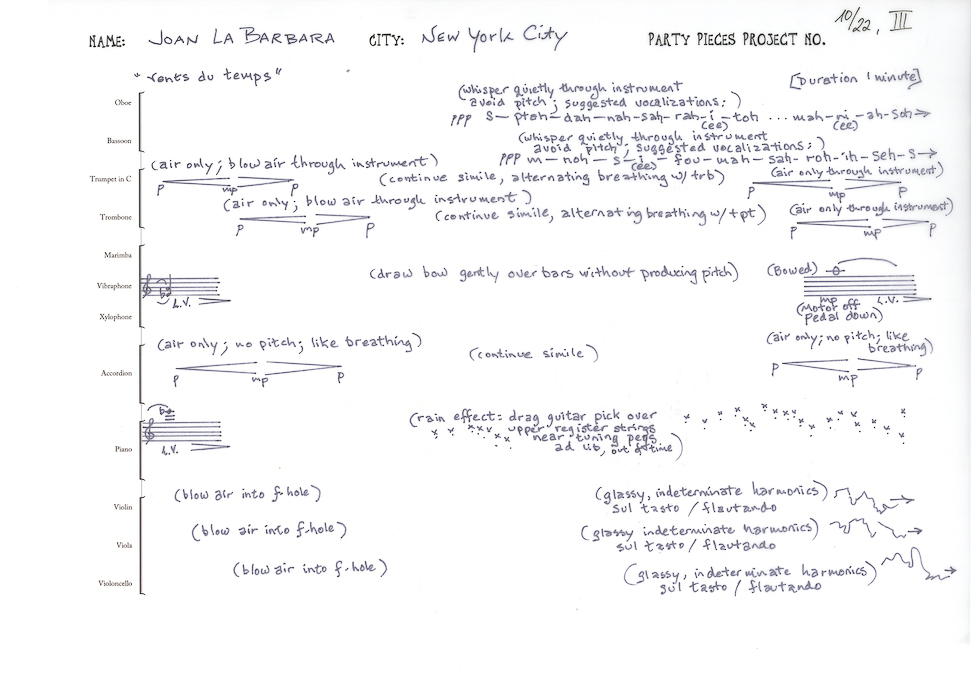 NAME: JOAN LA BARBARA CITY: NEW YORK CITY PARTY PIECES PROJECT NO. 10/22, III
"vents du temps" [Duration 1 minute]
Oboe (whisper quietly through instrument
avoid pitch; suggested vocalizations:)
ppp S – ptoh – dah – nah – sah – rah – i – toh ... mah – ni – ah – Soh →
(ee) (ee)
Bassoon (whisper quietly through instrument
avoid pitch; suggested vocalizations:)
ppp m – noh – s – i – fou – mah – sah – roh – ih – seh – s →
(ee)
Trumpet in C (air only; blow air through instrument) (continue simile, alternating breathing w/ trb) (air only through instrument)
p mp p p mp p
Trombone (air only; blow air through instrument) (continue simile, alternating breathing w/ tpt) (air only through instrument)
p mp p p mp p
Marimba
Vibraphone (draw bow gently over bars without producing pitch) (Bowed)
L.V. mp L.V.
(Motor off
pedal down)
Xylophone
Accordion (air only; no pitch; like breathing) (continue simile) (air only; no pitch; like
breathing)
p mp p p mp p
Piano (rain effect: drag guitar pick over
upper register strings
near tuning pegs
ad lib, out of time)
L.V.
Violin (blow air into f-hole) (glassy, indeterminate harmonics)
sul tasto / flautando
Viola (blow air into f-hole) (glassy indeterminate harmonics)
sul tasto / flautando
Violoncello (blow air into f-hole) (glassy, indeterminate harmonics)
sul tasto / flautando